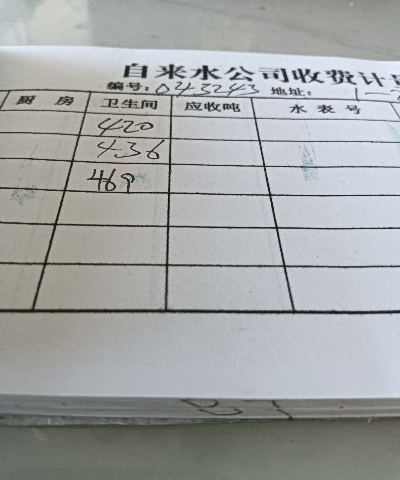 自来水公司收费计
编号: 043243 地址: 1-
厨房 卫生间 应收吨 水表号
420
436
469